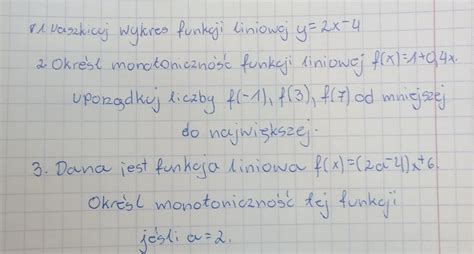 1. Naszkicuj wykres funkcji liniowej y=2x-4
2. Określ monotoniczność funkcji liniowej f(x)=1+0,4x.
uporządkuj liczby f(-1), f(3), f(7) od mniejszej
do największej.
3. Dana jest funkcja liniowa f(x)=(2a-4)x+6.
Określ monotoniczność tej funkcji
jeśli a=2.